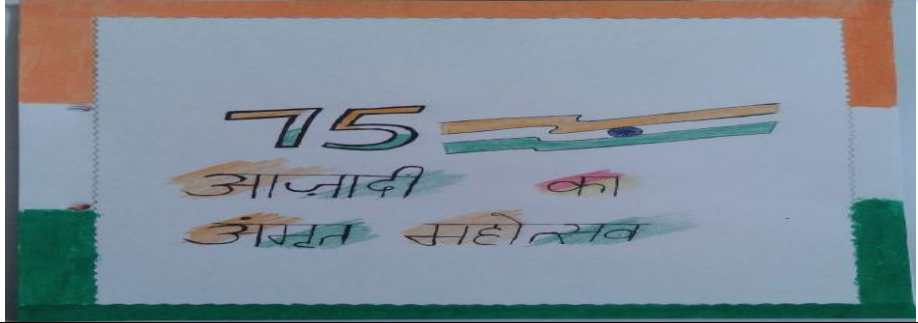 75
आज़ादी का
अंमृत महोत्सव